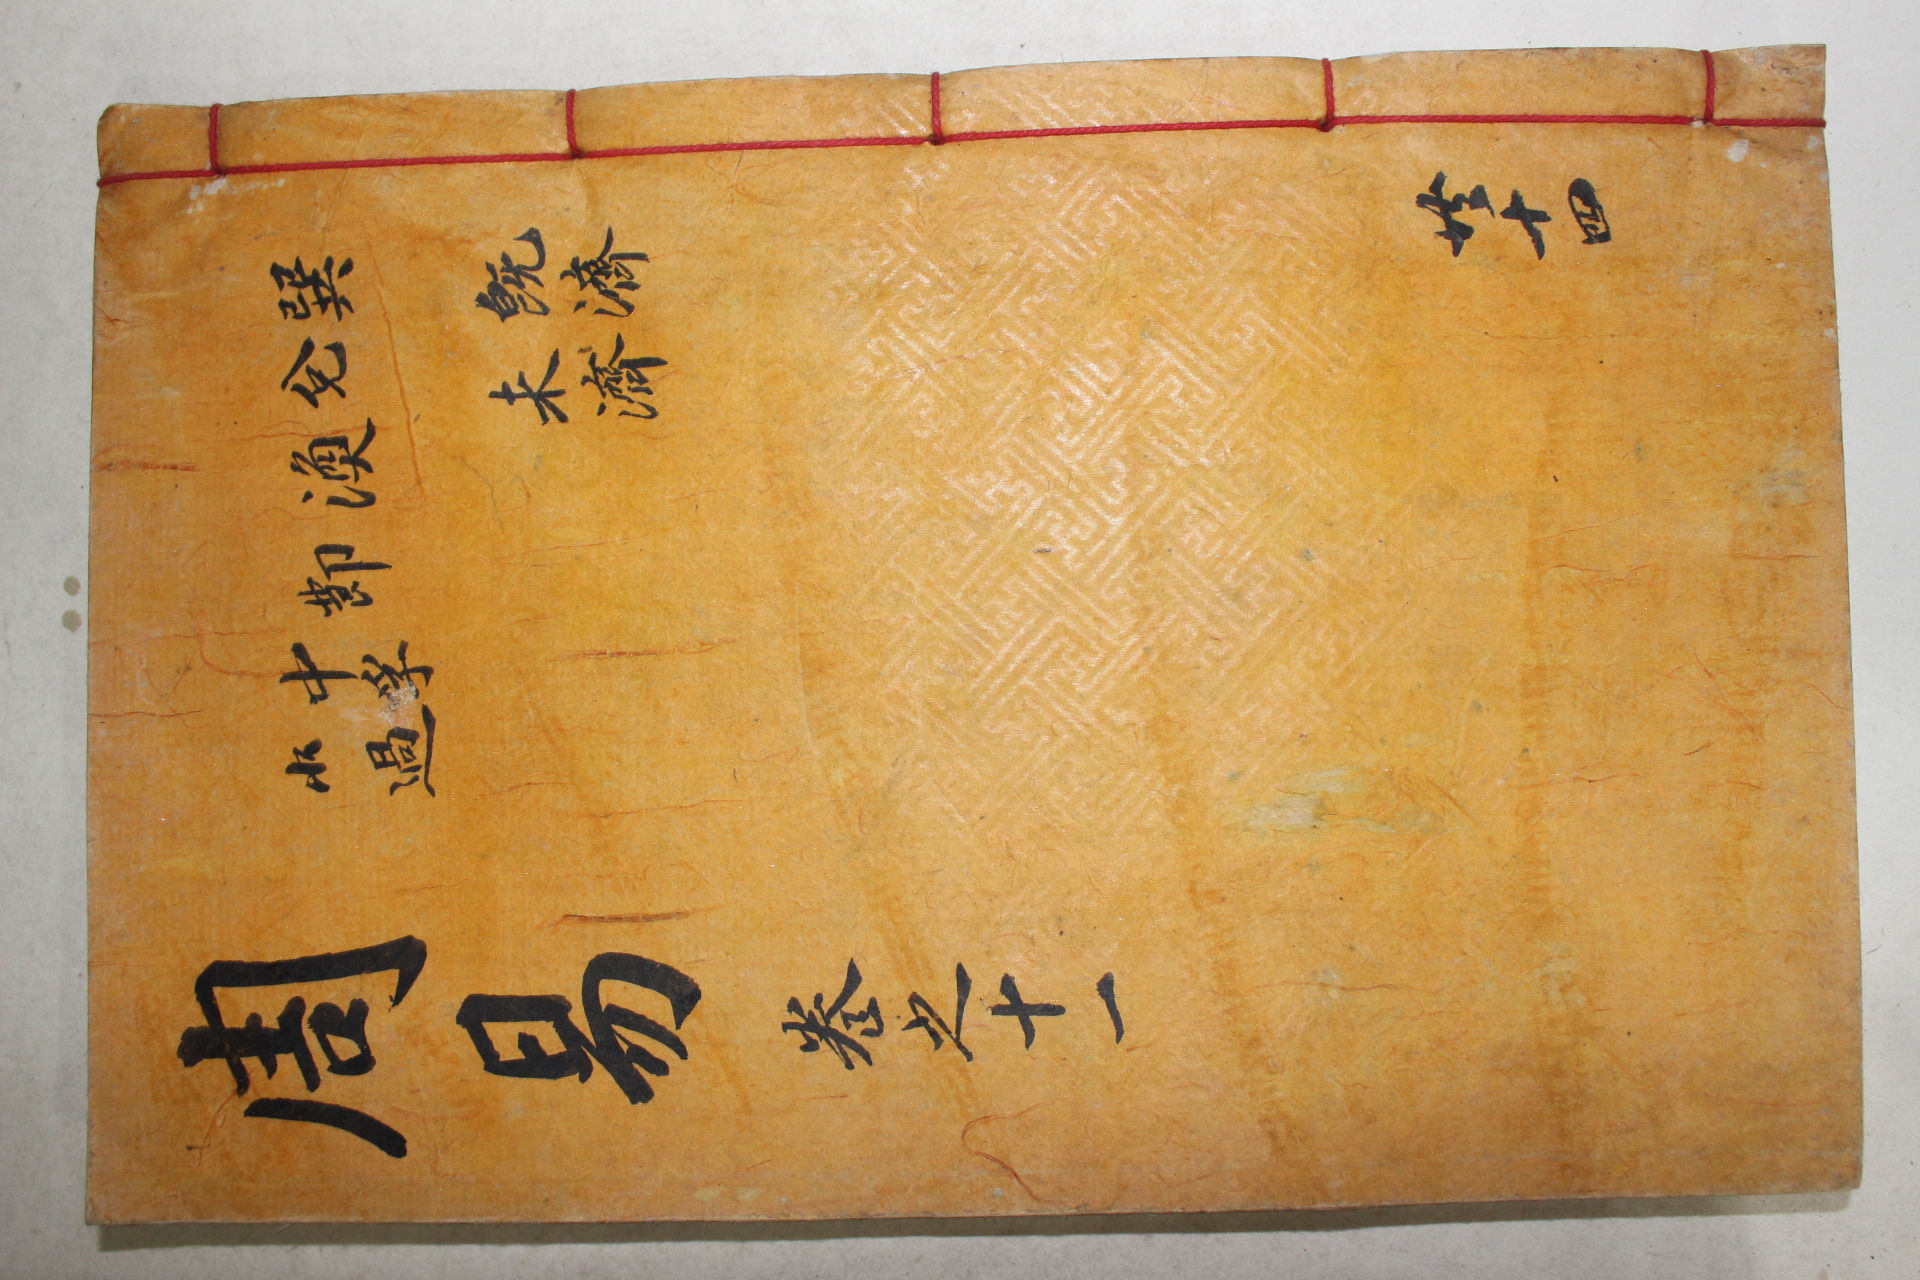 巽
兌
渙
節
中孚
小過
旣濟
未濟
共十四
周易 卷之十一